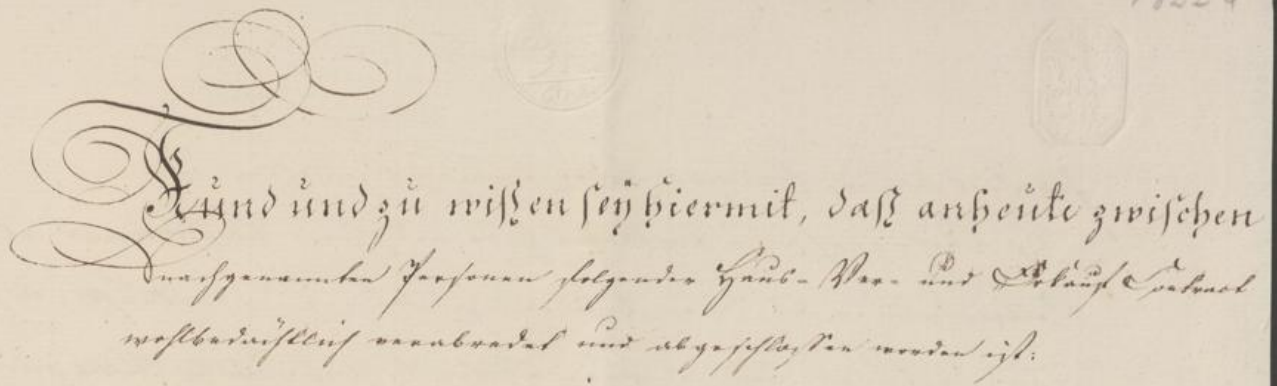 Kund und zu wißen seÿ hiermit, daß anheute zwischen
nachgenannten Personen folgender Haus- Ver- und Erkauf Contract
wohlbedächtlich verabredet und abgeschlossen worden ist: